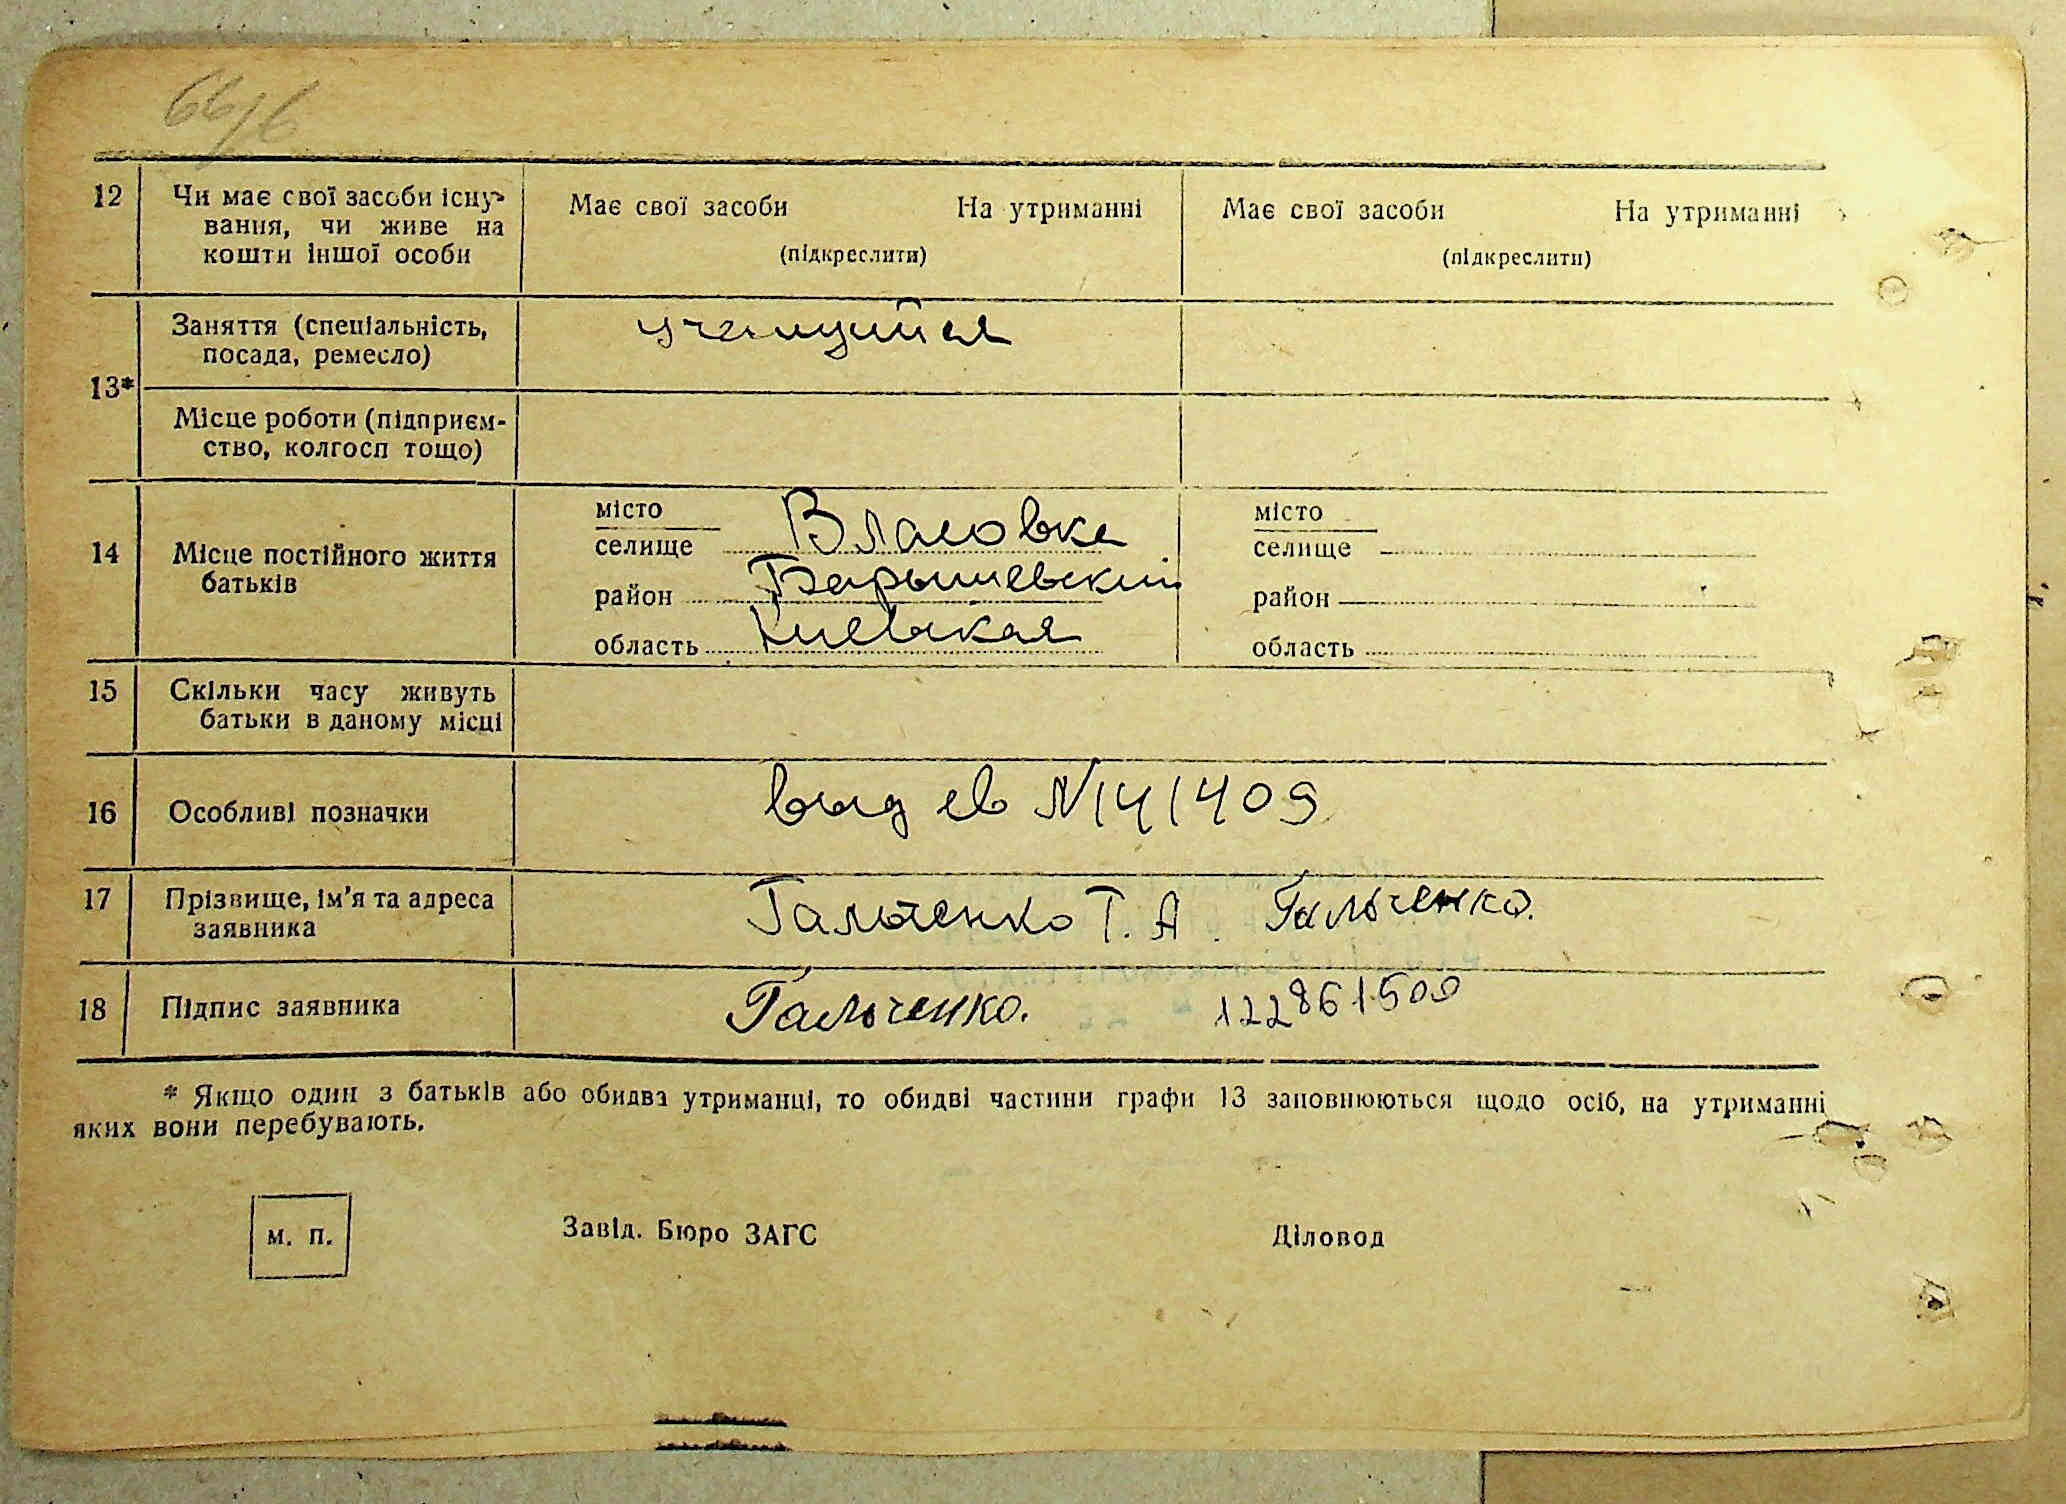 66/6
12 Чи має свої засоби існу- Має свої засоби На утриманні Має свої засоби На утриманні
вання, чи живе на
кошти іншої особи (підкреслити) (підкреслити)
Заняття (спеціальність, учащийся
посада, ремесло)
13*
Місце роботи (підприєм-
ство, колгосп тощо)
місто місто
14 Місце постійного життя селище Власовка селище
батьків район Барышевский район
область Киевская область
15 Скільки часу живуть
батьки в даному місці
16 Особливі позначки выд св N141409
17 Прізвище, ім'я та адреса Гальченко Т. А. Гальченко.
заявника
18 Підпис заявника Гальченко. 122861509
* Якщо один з батьків або обидва утриманці, то обидві частини графи 13 заповнюються щодо осіб, на утриманні
яких вони перебувають.
м. п. Завід. Бюро ЗАГС Діловод